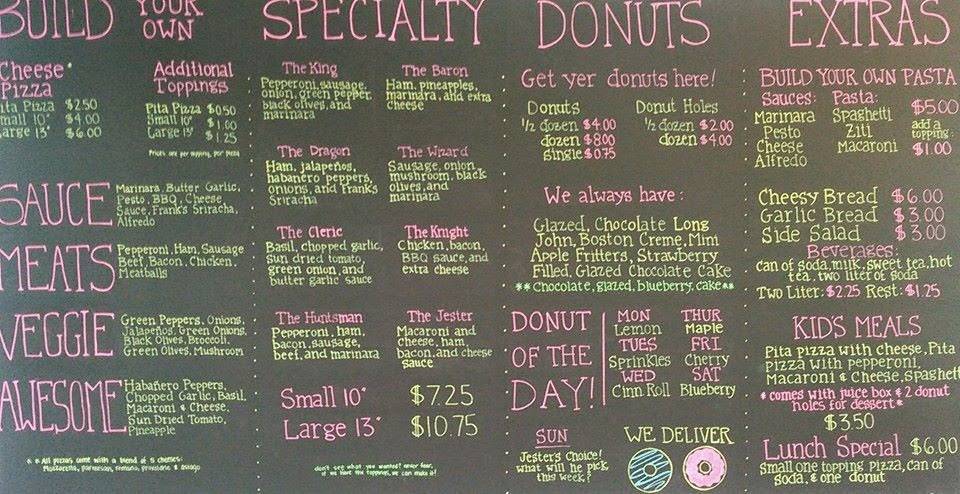 BUILD YOUR OWN
Cheese*
Pizza
Pita Pizza $2.50
Small 10" $4.00
Large 13" $6.00
Additional
Toppings
Pita Pizza $0.50
Small 10" $1.00
Large 13" $1.25
Prices are per topping, per pizza
SAUCE
Marinara, Butter Garlic,
Pesto, BBQ, Cheese
Sauce, Frank's Sriracha,
Alfredo
MEATS
Pepperoni, Ham, Sausage
Beef, Bacon, Chicken,
Meatballs
VEGGIE
Green Peppers, Onions,
Jalapeños, Green Onions,
Black Olives, Broccoli,
Green Olives, Mushroom
AWESOME
Habañero Peppers,
Chopped Garlic, Basil,
Macaroni & Cheese,
Sun Dried Tomato,
Pineapple
* * All pizzas come with a blend of 5 cheeses:
Mozzarella, parmesan, romano, provolone & asiago
SPECIALTY
The King
Pepperoni, sausage,
onion, green pepper,
black olives, and
marinara
The Baron
Ham, pineapples,
marinara, and extra
cheese
The Dragon
Ham, jalapeños,
habanero peppers,
onions, and Franks
Sriracha
The Wizard
Sausage, onion,
mushroom, black
olives, and
marinara
The Cleric
Basil, chopped garlic,
sun dried tomato,
green onion, and
butter garlic sauce
The Knight
Chicken, bacon,
BBQ sauce, and
extra cheese
The Huntsman
Pepperoni, ham,
bacon, sausage,
beef, and marinara
The Jester
Macaroni and
cheese, ham,
bacon, and cheese
sauce
Small 10" $7.25
Large 13" $10.75
don't see what you wanted? never fear,
if we have the toppings, we can make it!
DONUTS
Get yer donuts here!
Donuts
1/2 dozen $4.00
dozen $8.00
single $0.75
Donut Holes
1/2 dozen $2.00
dozen $4.00
We always have:
Glazed, Chocolate Long
John, Boston Creme, Mini
Apple Fritters, Strawberry
Filled, Glazed Chocolate Cake
**Chocolate, glazed, blueberry, cake**
DONUT
OF THE
DAY!
MON
Lemon
TUES
Sprinkles
WED
Cinn Roll
THUR
Maple
FRI
Cherry
SAT
Blueberry
SUN
Jester's Choice!
What will he pick
this week?
WE DELIVER
EXTRAS
BUILD YOUR OWN PASTA
Sauces:
Marinara
Pesto
Cheese
Alfredo
Pasta:
Spaghetti
Ziti
Macaroni
$5.00
add a
topping:
$1.00
Cheesy Bread $6.00
Garlic Bread $3.00
Side Salad $3.00
Beverages:
can of soda, milk, sweet tea, hot
tea, two liter of soda
Two Liter: $2.25 Rest: $1.25
KID'S MEALS
Pita pizza with cheese, Pita
pizza with pepperoni,
Macaroni & Cheese, Spaghett
* comes with juice box & 2 donut
holes for dessert*
$3.50
Lunch Special $6.00
small one topping pizza, can of
soda, & one donut